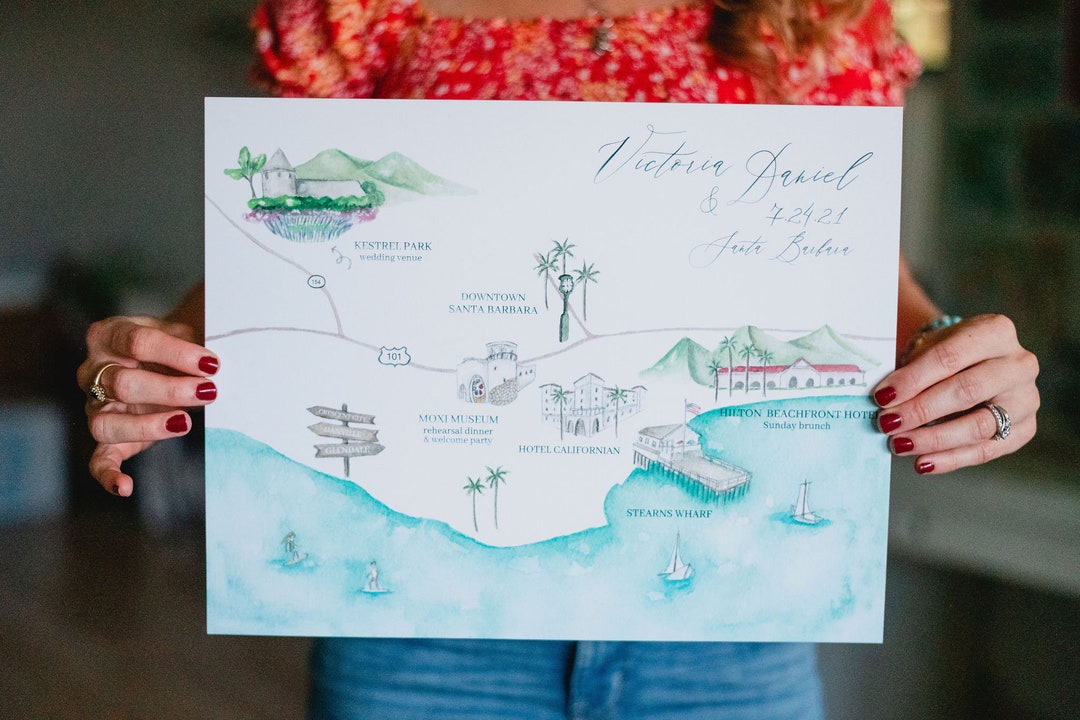 Victoria
& Daniel
7.24.21
Santa Barbara
KESTREL PARK
wedding venue
154
DOWNTOWN
SANTA BARBARA
101
MOXI MUSEUM
rehearsal dinner
& welcome party
HOTEL CALIFORNIAN
HILTON BEACHFRONT HOTEL
Sunday brunch
CRESCENT CITY
GLENDALE
STEARNS WHARF